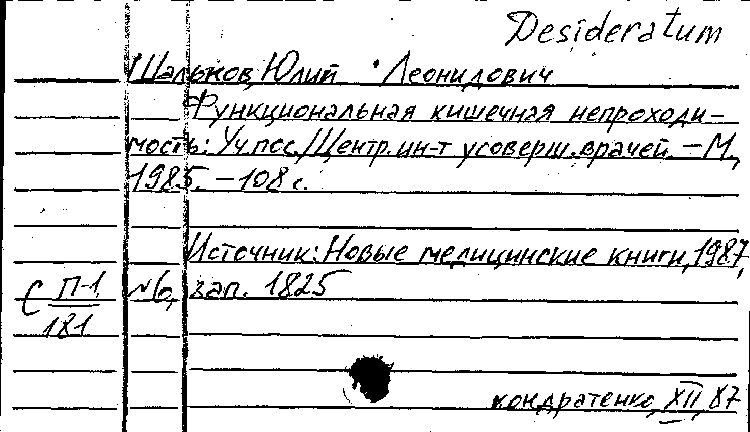 Desideratum
Шальков, Юлий Леонидович
Функциональная кишечная непроходи-
мость: Уч. пос./Центр. ин-т усоверш. врачей. - М.,
1985. - 108 с.
Источник: Новые медицинские книги, 1987,
С П-1 №6, зап. 1825
181
кондратенко, XII, 87